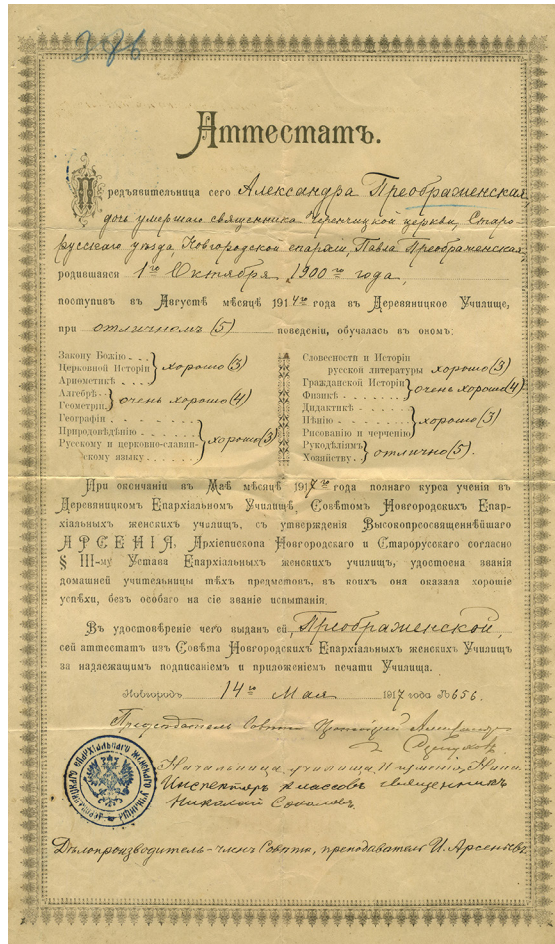 Аттестатъ.
Предъявительница сего Александра Преображенская,
дочь умершаго священника Черенчицкой церкви, Старо
русскаго уѣзда Новгородской епархіи, Павла Преображенская,
родившаяся 1го Октября 1900го года,
поступивъ въ Августѣ мѣсяцѣ 1914го года въ Деревяницкое Училище,
при отличномъ (5) поведеніи, обучалась въ ономъ:
Закону Божію
Церковной Исторіи хорошо (3)
Ариѳметикѣ
Алгебрѣ
Геометріи очень хорошо (4)
Географіи
Природовѣдѣнію
Русскому и церковно-славян- хорошо (3)
скому языку
Словесности и Исторіи
русской литературы хорошо (3)
Гражданской Исторіи
Физикѣ очень хорошо (4)
Дидактикѣ
Пѣнію хорошо (3)
Рисованію и черченію
Рукодѣліямъ
Хозяйству отлично (5).
При окончаніи въ Маѣ мѣсяцѣ 1917го года полнаго курса ученія въ
Деревяницкомъ Епархіальномъ Училищѣ, Совѣтомъ Новгородскихъ Епар-
хіальныхъ женскихъ училищъ, съ утвержденія Высокопреосвященнѣйшаго
АРСЕНІЯ, Архіепископа Новгородскаго и Старорусскаго согласно
§ III-му Устава Епархіальныхъ женскихъ училищъ, удостоена званія
домашней учительницы тѣхъ предметовъ, въ коихъ она оказала хорошіе
успѣхи, безъ особаго на сіе званіе испытанія.
Въ удостовѣреніе чего выданъ ей, Преображенской,
сей аттестатъ изъ Совѣта Новгородскихъ Епархіальныхъ женскихъ Училищъ
за надлежащимъ подписаніемъ и приложеніемъ печати Училища.
Новгородъ 14го Мая 1917 года № 656.
Предсѣдатель Совѣта
Начальница училища
Инспекторъ классовъ священникъ
Николай Соколовъ
Дѣлопроизводитель-членъ Совѣта, преподаватель И. Арсеньевъ.